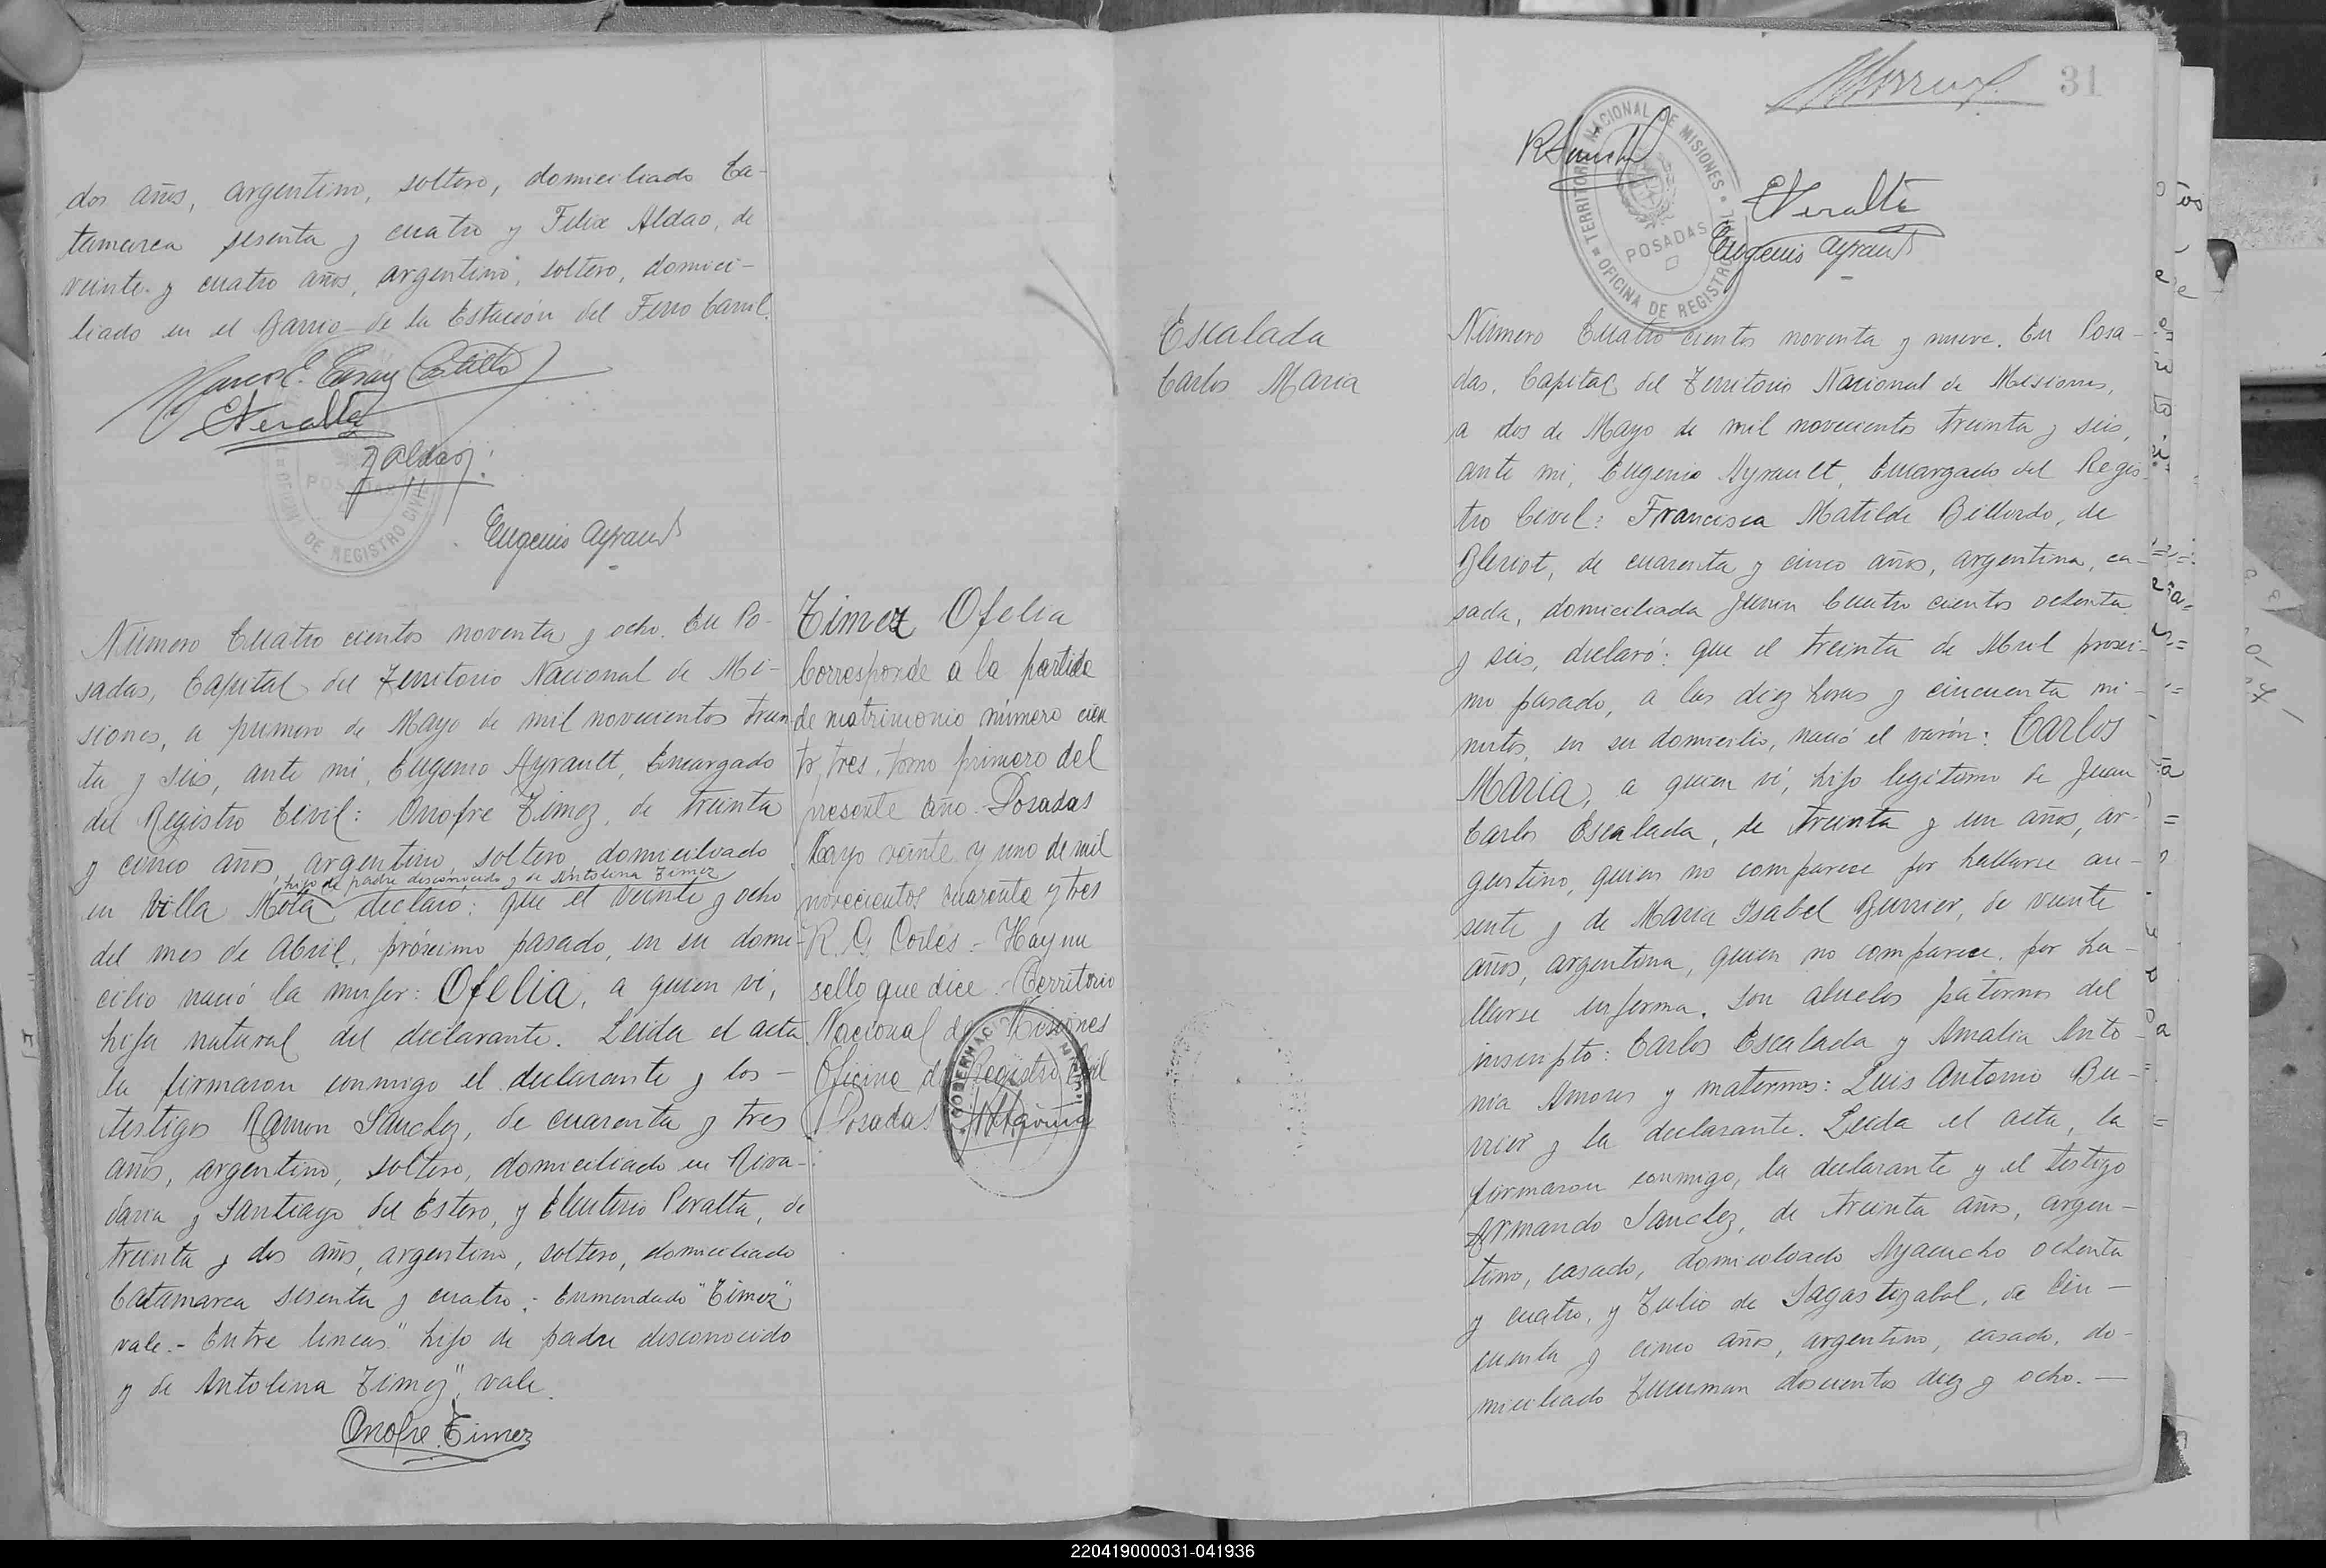 dos años, argentino, soltero, domiciliado Ca-
tamarca sesenta y cuatro y Felix Aldao, de
veinte y cuatro años, argentino, soltero, domici-
liado en el Barrio de la Estación del Ferro Carril.
EPeralta
FAldao
POSADAS
DE REGISTRO CIVIL
Eugenio Ayrault
Número Cuatro cientos noventa y ocho. En Po-
sadas, Capital del Territorio Nacional de Mi-
siones, a primero de Mayo de mil novecientos trein
ta y seis, ante mí, Eugenio Ayrault, Encargado
del Registro Civil: Onofre Timez, de treinta
y cinco años, argentino, soltero, domiciliado
hijo de padre desconocido y de Antolina Timez
en Villa Mota declaró: que el veinte y ocho
del mes de Abril, próximo pasado, en su domi-
cilio nació la mujer: Ofelia, a quien vi,
hija natural del declarante. Leida el acta
la firmaron conmigo el declarante y los -
testigos Ramon Sánchez, de cuarenta y tres
años, argentino, soltero, domiciliado en Riva-
davia y Santiago del Estero, y Eleuterio Peralta, de
treinta y dos años, argentino, soltero, domiciliado
Catamarca sesenta y cuatro: Enmendado "Timez"
vale.- Entre lineas "hijo de padre desconocido
y de Antolina Timez", vale.
Onofre Timez
Timez Ofelia
Corresponde a la partida
de matrimonio número cien
to tres, tomo primero del
presente año. Posadas
Mayo veinte y uno de mil
novecientos cuarenta y tres
R. G. Cortés = Hay un
sello que dice. Territorio
Nacional de Misiones
Oficina de Registro Civil
Posadas
31
TERRITORIO NACIONAL DE MISIONES
OFICINA DE REGISTRO CIVIL
POSADAS
RSanchez
EPeralta
Eugenio Ayrault
Escalada
Carlos Maria
Número Cuatro cientos noventa y nueve. En Posa-
das, Capital del Territorio Nacional de Misiones,
a dos de Mayo de mil novecientos treinta y seis,
ante mi, Eugenio Ayrault, Encargado del Regis-
tro Civil: Francisca Matilde Billordo, de
Bleriot, de cuarenta y cinco años, argentina, ca-
sada, domiciliada Junin Cuatro cientos ochenta
y seis, declaró: que el treinta de Abril proxi-
mo pasado, a las diez horas y cincuenta mi-
nutos, en su domicilio, nació el varón: Carlos
Maria, a quien vi, hijo legitimo de Juan
Carlos Escalada, de treinta y un años, ar-
gentino, quien no comparece por hallarse au-
sente y de Maria Isabel Buvier, de veinte
años, argentina, quien no comparece por ha-
llarse enferma. Son abuelos paternos del
inscripto: Carlos Escalada y Amalia Anto-
nia Amores y maternos: Luis Antonio Bu-
vier y la declarante. Leida el acta, la
firmaron conmigo, la declarante y el testigo
Armando Sanchez, de treinta años, argen-
tino, casado, domiciliado Ayacucho ochenta
y cuatro, y Julio de Sagastizabal, de cin-
cuenta y cinco años, argentino, casado, do-
miciliado Tucuman doscientos diez y ocho.-
220419000031-041936